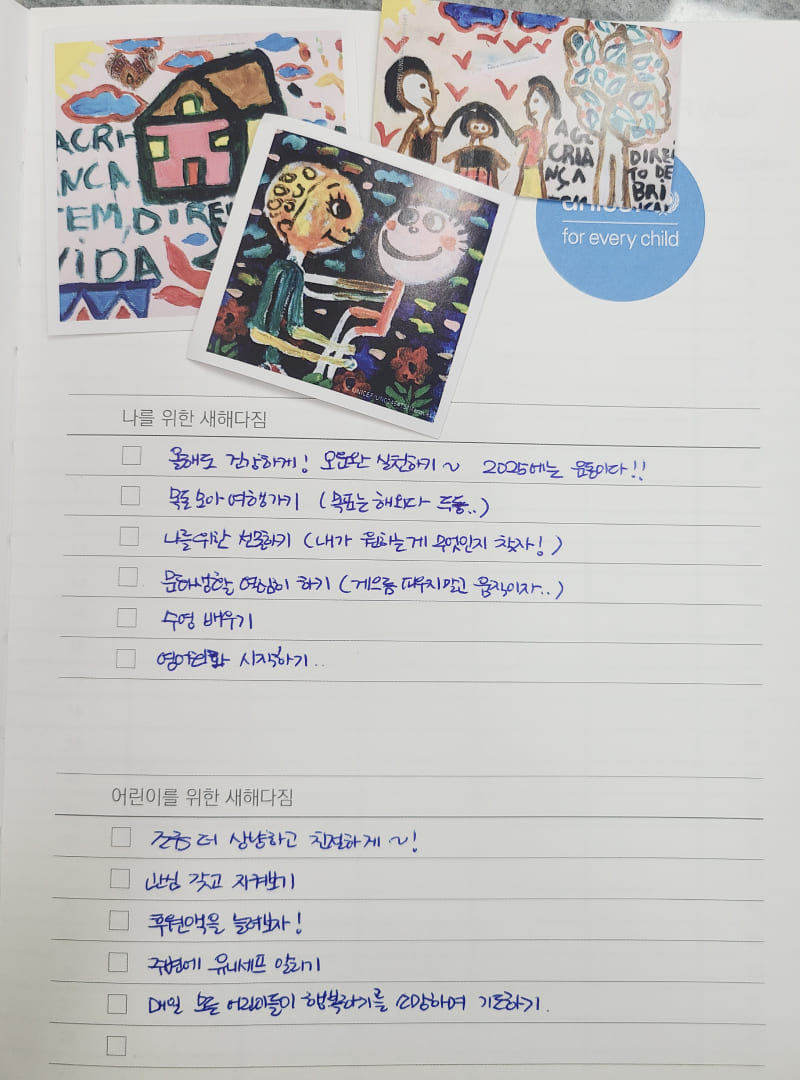 ACRI-
ANCA
TEM, DIRE
VIDA
AGE
CRIA
NÇA
DIREI
TO DE
BRI
unicef
for every child
나를 위한 새해다짐
올해도 건강하게! 오운완 실천하기 ~ 2025에는 운동이다!!
목돈 모아 여행가기 (목표는 해외다 두둥..)
나를위한 선물하기 (내가 원하는게 무엇인지 찾자!)
문화생활 열심히 하기 (게으름 피우지말고 움직이자..)
수영 배우기
영어회화 시작하기..
어린이를 위한 새해다짐
조금 더 상냥하고 친절하게 ~!
관심 갖고 지켜보기
후원액을 늘려보자!
주변에 유니세프 알리기
매일 모든 어린이들이 행복하기를 소망하며 기도하기.